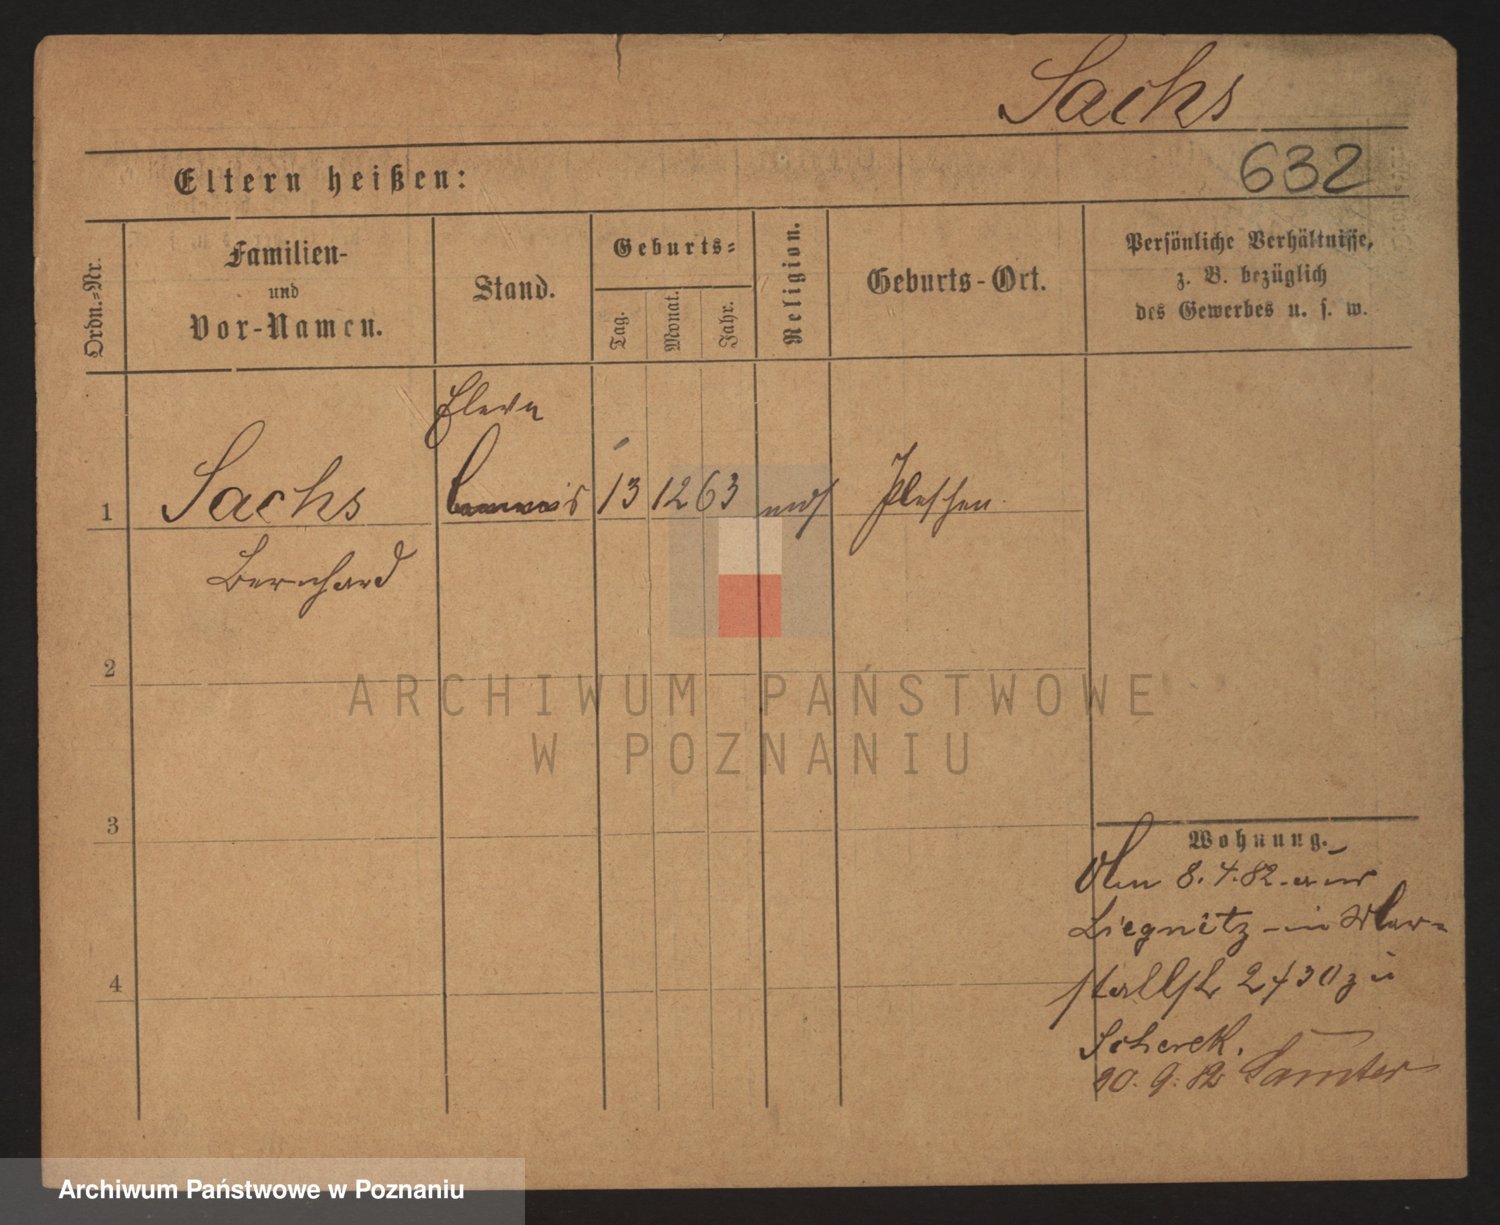 Sachs
632
Eltern heißen:
Ordn.=Nr.
Familien-
und
Vor-Namen.
Stand.
Geburts=
Tag.
Monat.
Jahr.
Religion.
Geburts-Ort.
Persönliche Verhältnisse,
z. B. bezüglich
des Gewerbes u. s. w.
1
Sachs
13
12
63
mos
Pleschen
Bernhard
2
3
4
Wohnung.
8. 4. 82 aus
Liegnitz in Mar-
stallstr 2 zu
Scherek.
20. 9. 82 Samter
ARCHIWUM PAŃSTWOWE
W POZNANIU
Archiwum Państwowe w Poznaniu